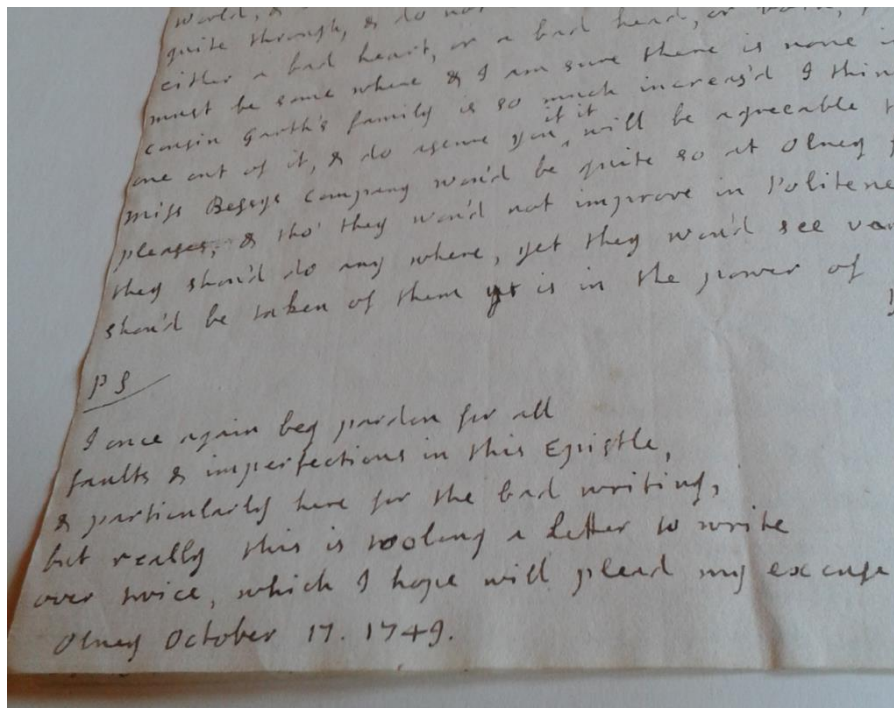 world, &
quite through, & do not
either a bad heart, or a bad head, or both,
must be some where & I am sure there is none in
cousin Garth's family is so much increas'd I think
one out of it, & do assure you if it will be agreeable t
miss Bessys company wou'd be quite so at Olney
pleases, & tho' they wou'd not improve in Politene
they shou'd do any where, yet they wou'd see va
shou'd be taken of them yt is in the power of
PS
I once again beg pardon for all
faults & imperfections in this Epistle,
& particularly here for the bad writing,
but really this is too long a Letter to write
over twice, which I hope will plead my excuse
Olney October 17. 1749.